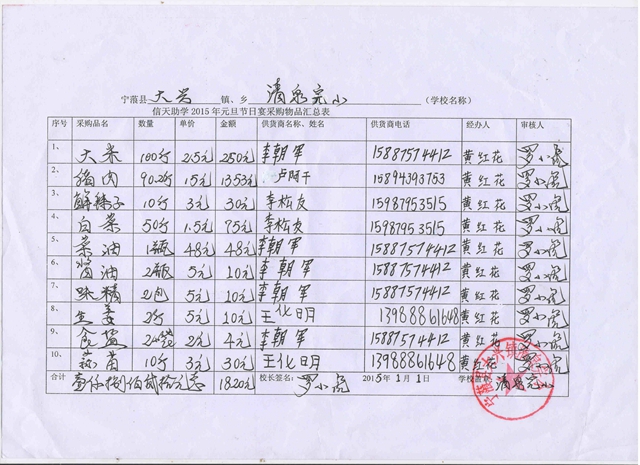 宁蒗县 大兴 镇、乡 清泉完小 (学校名称)
信天助学2015年元旦节日宴采购物品汇总表
序号 采购品名 数量 单价 金额 供货商名称、姓名 供货商电话 经办人 审核人
1、 大米 100斤 2.5元 250元 李朝军 15887574412 黄红花 罗小虎
2、 猪肉 90.2斤 15元 1353元 卢阿干 15894393753 黄红花 罗小虎
3、 鲜辣子 10斤 3元 30元 李松友 15987953515 黄红花 罗小虎
4、 白菜 50斤 1.5元 75元 李松友 15987953515 黄红花 罗小虎
5、 菜油 1瓶 48元 48元 李朝军 15887574412 黄红花 罗小虎
6、 酱油 2瓶 5元 10元 李朝军 15887574412 黄红花 罗小虎
7、 味精 2包 5元 10元 李朝军 15887574412 黄红花 罗小虎
8、 生姜 2斤 5元 10元 王化明 13988861648 黄红花 罗小虎
9、 食盐 2袋 2元 4元 李朝军 15887574412 黄红花 罗小虎
10、 蒜苗 10斤 3元 30元 王化明 13988861648 黄红花 罗小虎
合计 壹仟捌佰贰拾元 1820元 校长签名: 罗小虎 2015年1月1日 学校盖章 清泉完小